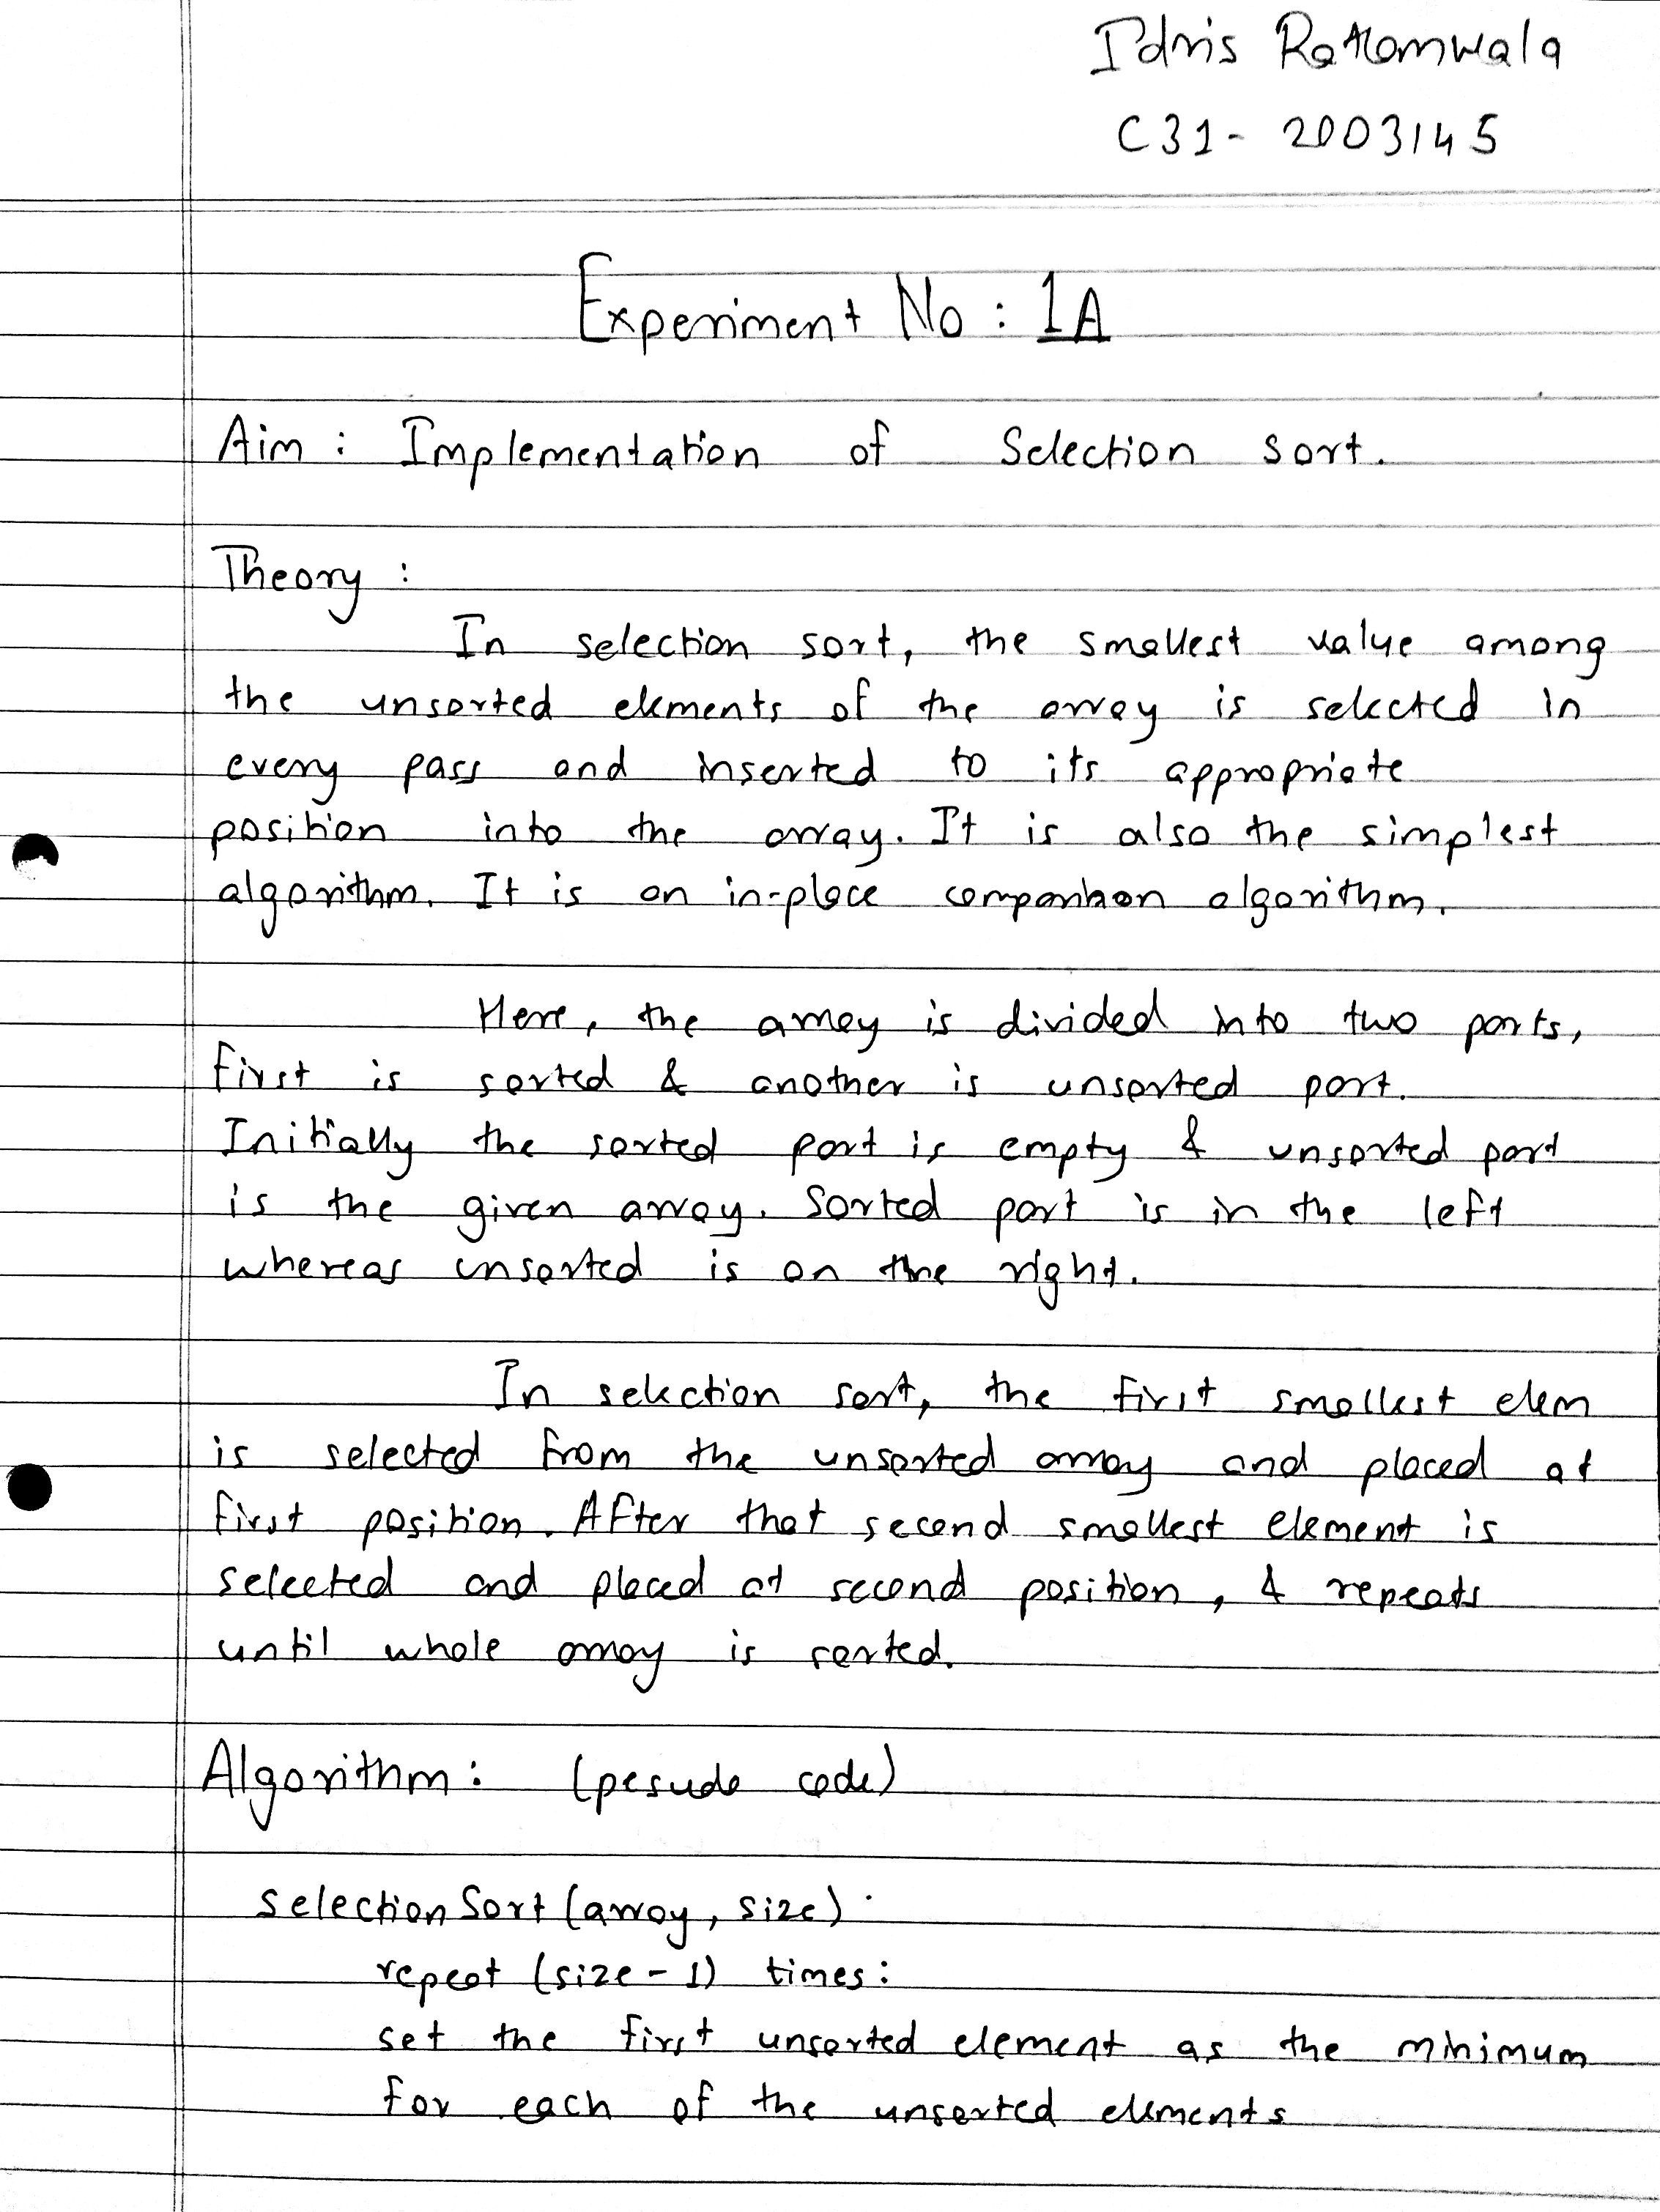 Idris Ratlamwala
C31- 2003145
Experiment No : 1A
Aim : Implementation of Selection sort.
Theory :
In selection sort, the smallest value among
the unsorted elements of the array is selected in
every pass and inserted to its appropriate
position into the array. It is also the simplest
algorithm. It is an in-place comparison algorithm.
Here, the array is divided into two parts,
first is sorted & another is unsorted part.
Initially the sorted part is empty & unsorted part
is the given array. Sorted part is in the left
whereas unsorted is on the right.
In selection sort, the first smallest elem
is selected from the unsorted array and placed at
first position. After that second smallest element is
selected and placed at second position, & repeats
until whole array is sorted.
Algorithm : (pesudo code)
selectionSort (array, size) :
repeat (size - 1) times :
set the first unsorted element as the minimum
for each of the unsorted elements